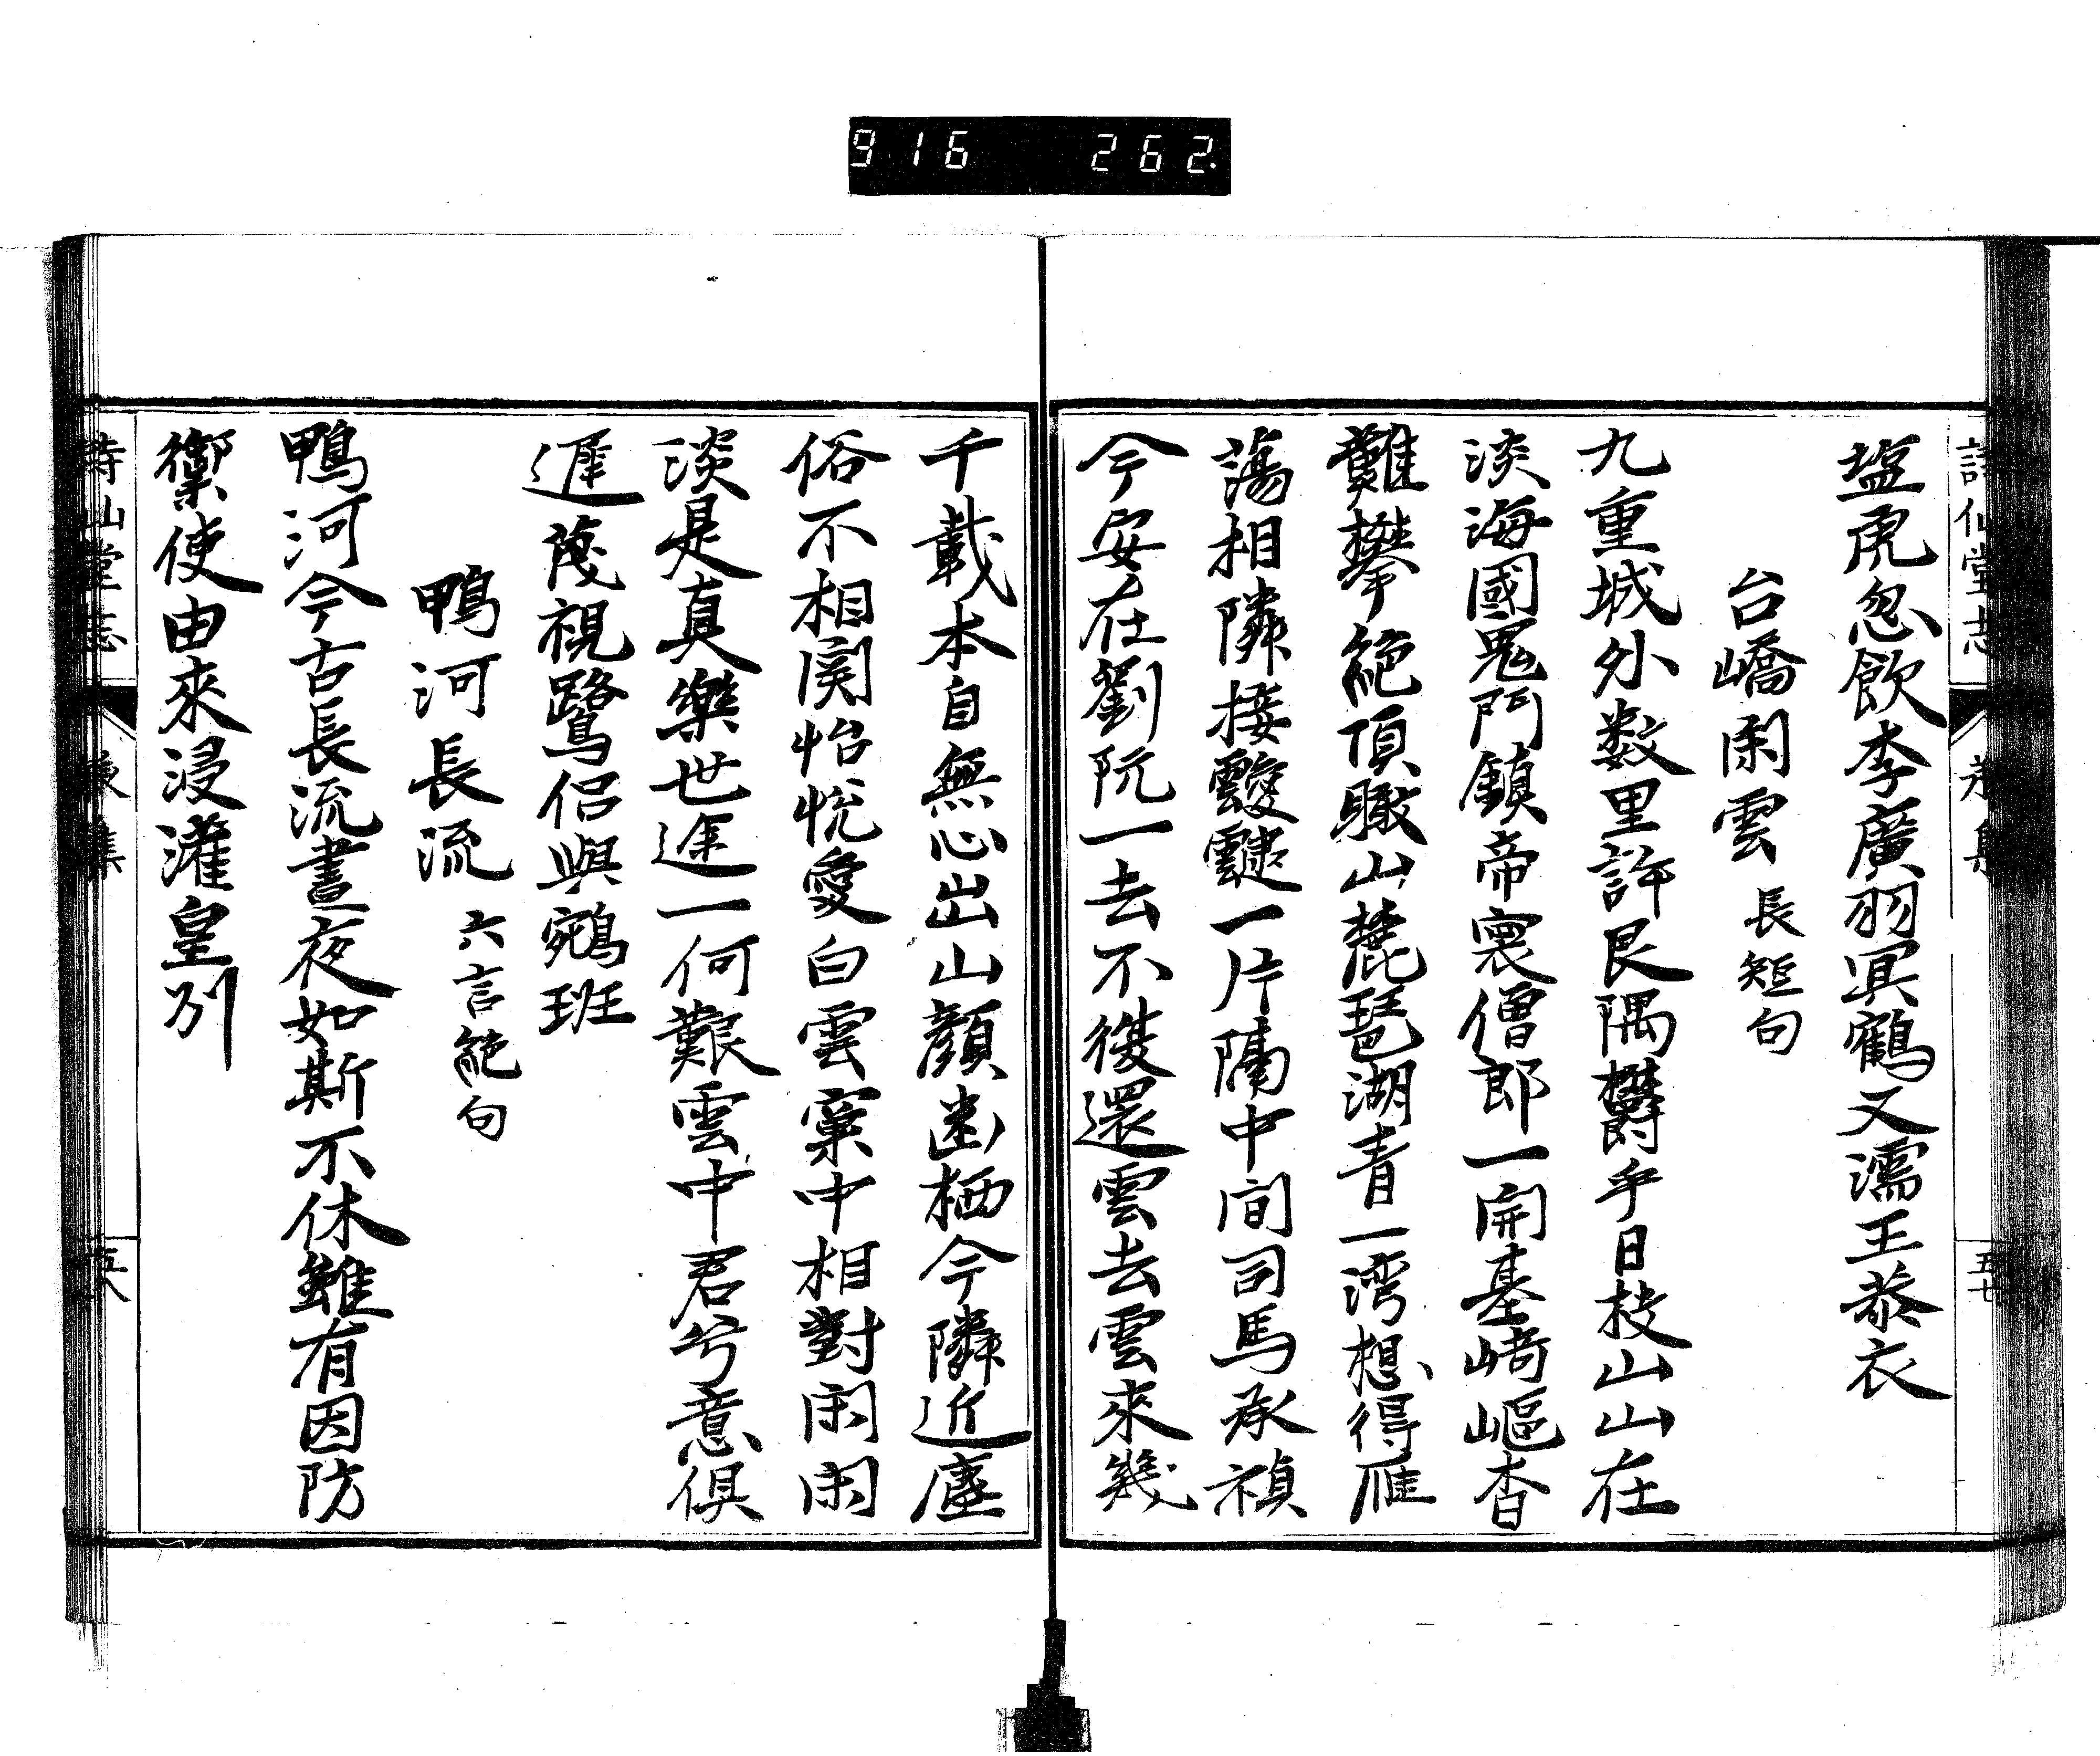 916 262
塩虎忽飲李廣羽冥鶴又濡王恭衣
台嶠閑雲 長短句
九重城外数里許艮隅欝乎日枝山山在
淡海國鬼門鎮帝寰僧郎一開基﨑嶇杳
難攀絶頂瞰山麓琵湖青一湾想得雁
蕩相隣接靉靆一片隔中間司馬承禎
今安在劉阮一去不復還雲去雲來幾
千載本自無心出山顔幽栖今隣近塵
俗不相関怡悅愛白雲窠中相對閑閑
淡是真樂世途一何艱雲中君兮意俱
遲蔑視鷺侶與鵷班
鴨河長流 六言絶句
鴨河今古長流晝夜如斯不休雖有因防
禦使由來浸灌皇州